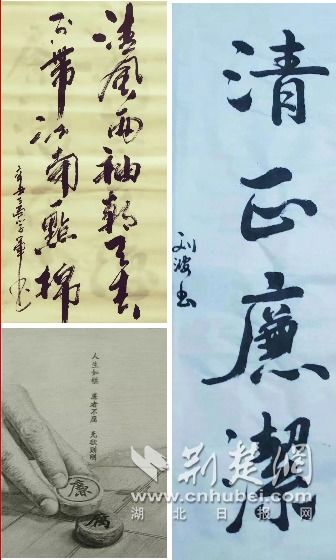 清风两袖朝天去
不帶江南一點棉
清正廉潔
刘波书
人生如棋 廉者不屈 无欲则刚
廉
荆楚网
www.cnhubei.com
湖北日报网